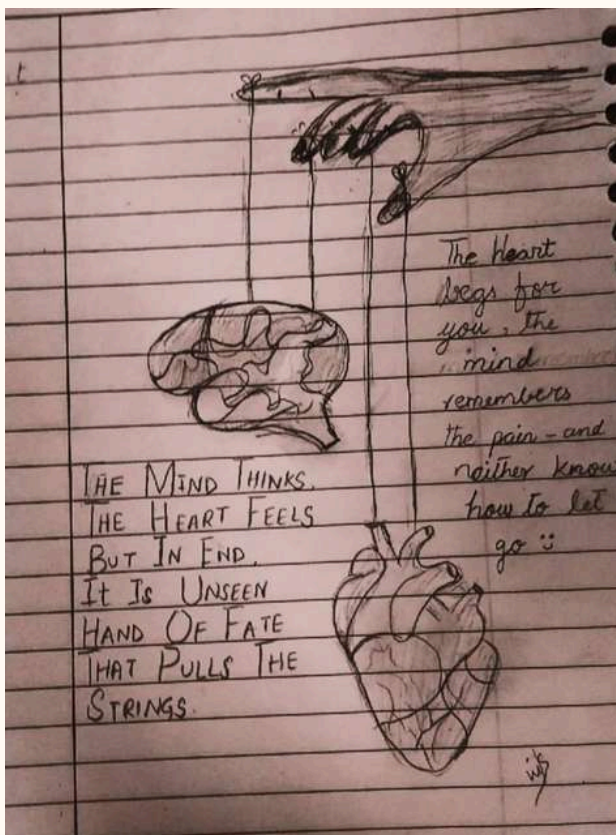 t
The heart
begs for
you, the
mind
remembers
the pain - and
neither know
how to let
go :)
THE MIND THINKS.
THE HEART FEELS
BUT IN END,
IT IS UNSEEN
HAND OF FATE
THAT PULLS THE
STRINGS.